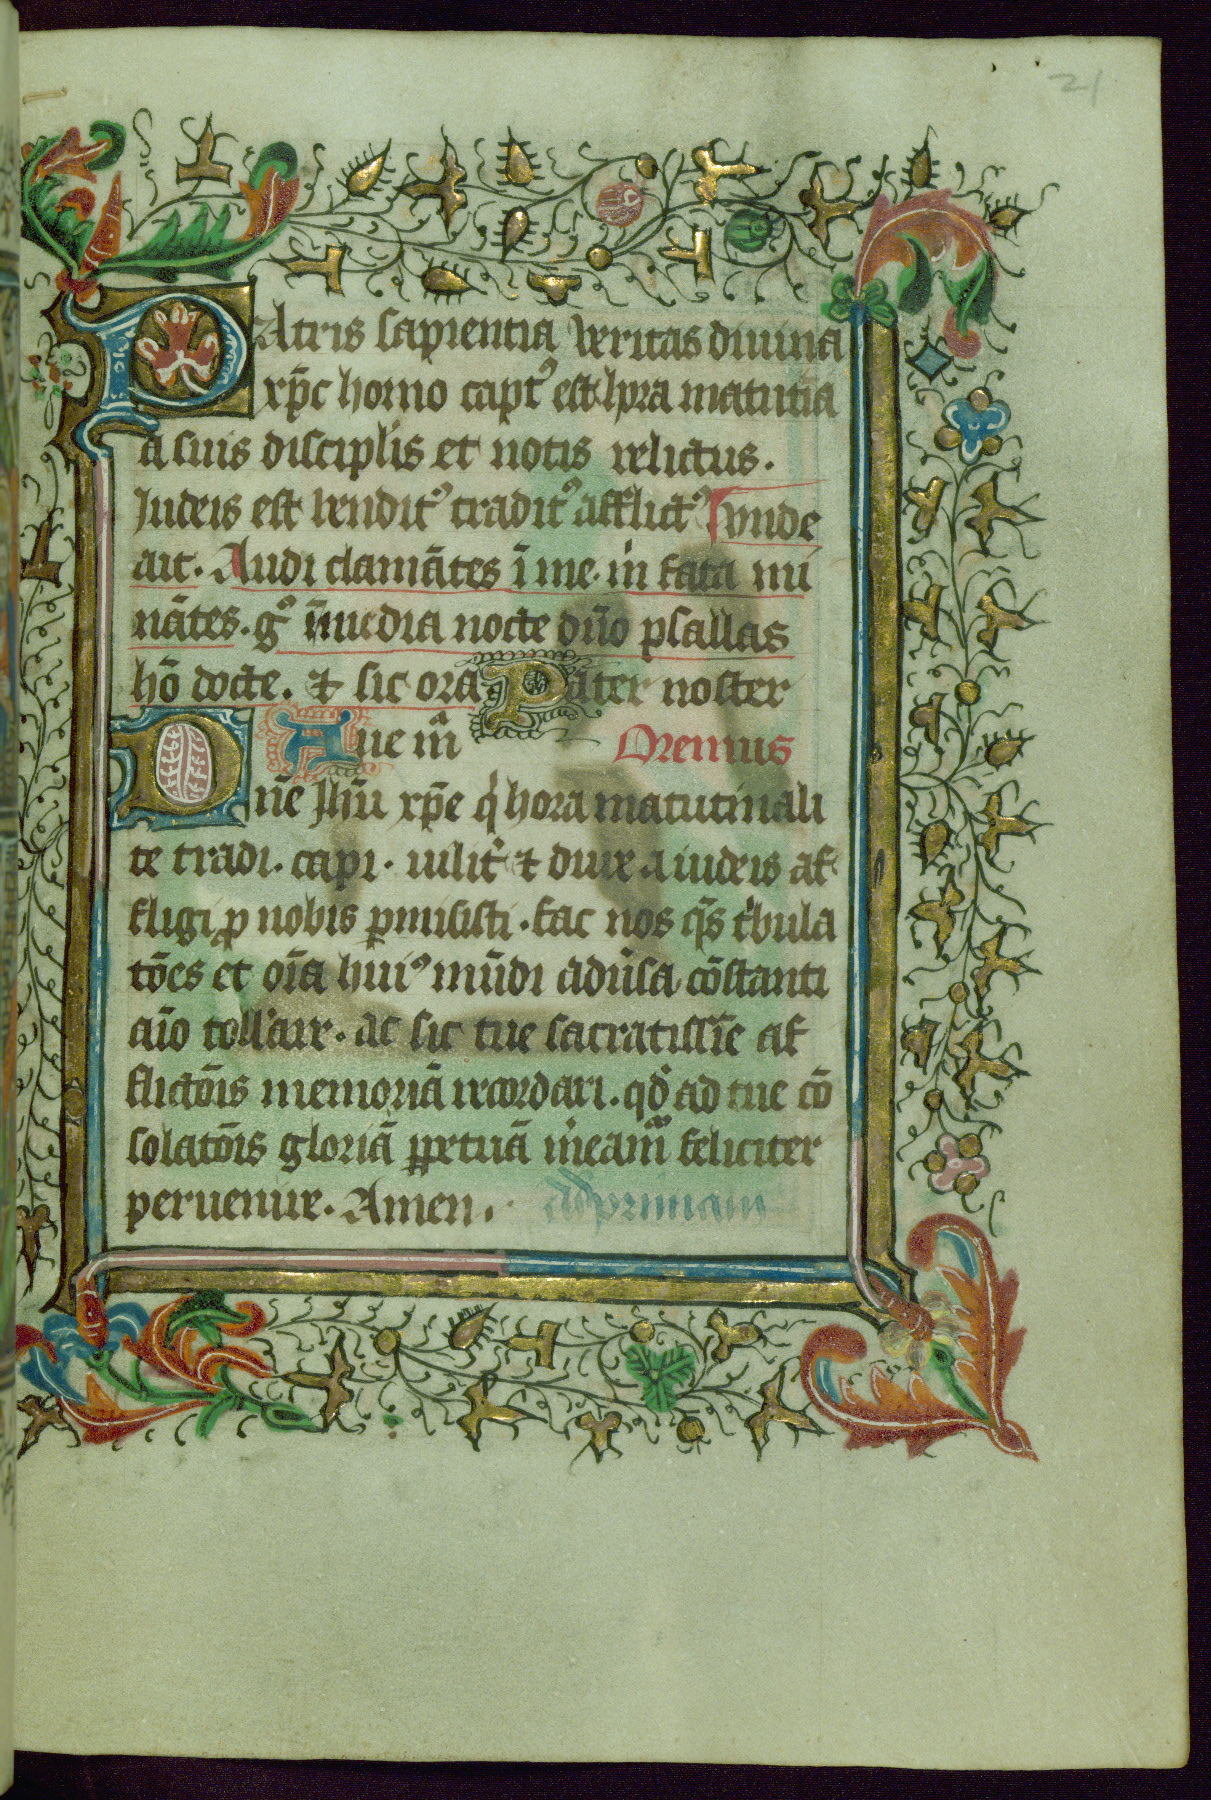 21
PAtris sapientia veritas diuina
xp̄c homo capt᷒ est hora matutīa
a suis disciplis et notis relictus.
Iudeis est vendit᷒ tradit᷒ afflict᷒ Vnde
ait. Audi clamātes ī me in fata mi
nātes. g᷒ ī media nocte dn̄o psallas
hō docte. ⁊ sic ora Pater noster
Aue m̄ Oremus
Dn̄e Jhū xp̄e q hora matutinali
te tradi. capi. vilit̄ ⁊ dure a iudeis af
fligi ꝓ nobis ꝑmisisti. fac nos q̄s t̄bula
tōes et oīa hui᷒ mūdi adūsa cōstanti
aīo toll'are. Ac sic tue sacratissīe af
flictōis memoriā recordari. qd̓ ad tue cō
solatōis gloriā ꝑpetuā m̓eam̄ feliciter
peruenire. Amen. Ad primam